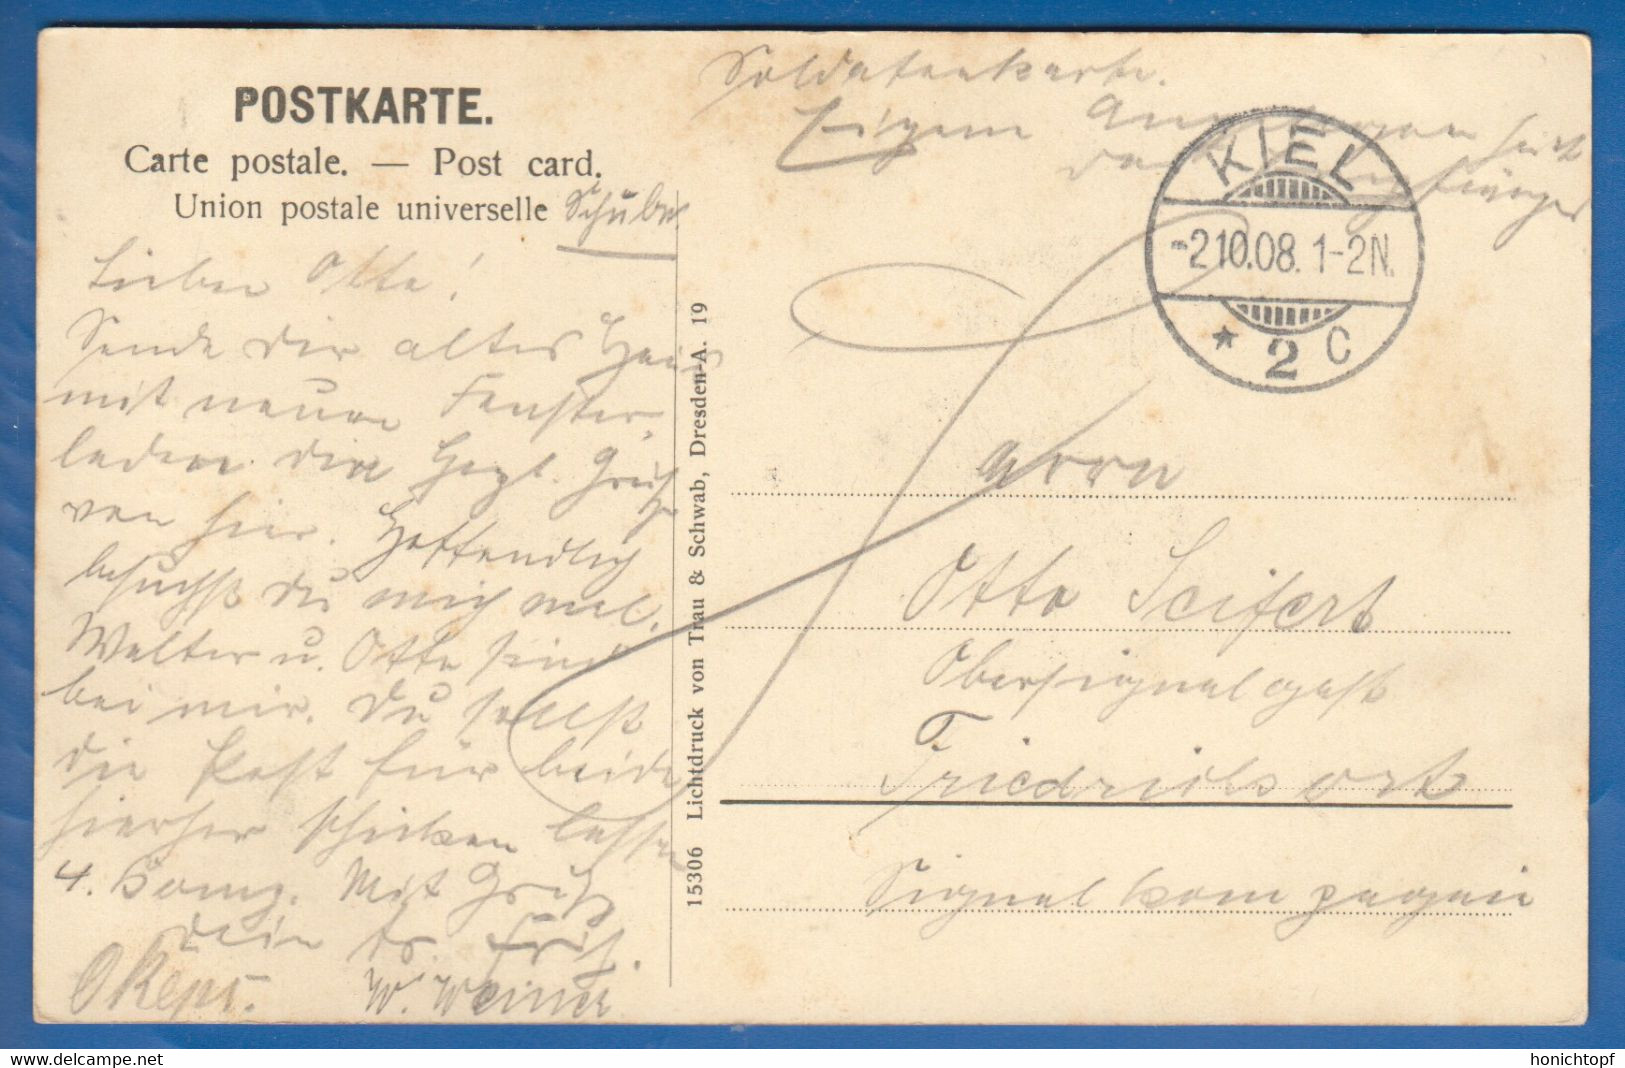 POSTKARTE.
Carte postale. — Post card.
Union postale universelle
Lieber Otto!
Sende dir altes Haus
mit neuen Fenster
laden die Herzl. Grüße
von hier. Hoffendlich
besuchst du mich mal.
Walter u. Otto sind
bei mir. Du sollst
die Post für beide
hierher schicken lassen
4. Komp. Mit Gruß
dein Fritz.
W.
15306 Lichtdruck von Trau & Schwab, Dresden-A. 19
Soldatenkarte.
Eigene Angelegenheit
des Empfängers
KIEL
-2.10.08. 1-2N.
* 2 C
Herrn
Otto Seifert
Obersignalgast
Friedrichsort
Signalkompagnie
hier-und-jetzt.com
honichtopf